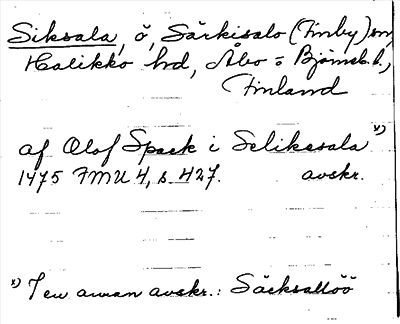 Siksala, ö, Särkisalo (Finby) sn,
Halikko hd, Åbo = Björneb. l.,
Finland
af Olof Spaak i Seliksala x)
1475 FMU 4, s. 427. avskr.
x) I en annan avskr.: Säcksallöö